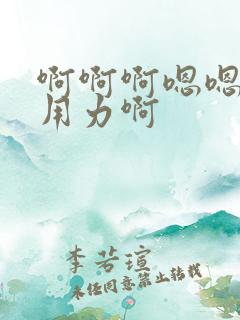 啊啊啊嗯嗯
用力啊
李若瑄
未经同意禁止转载